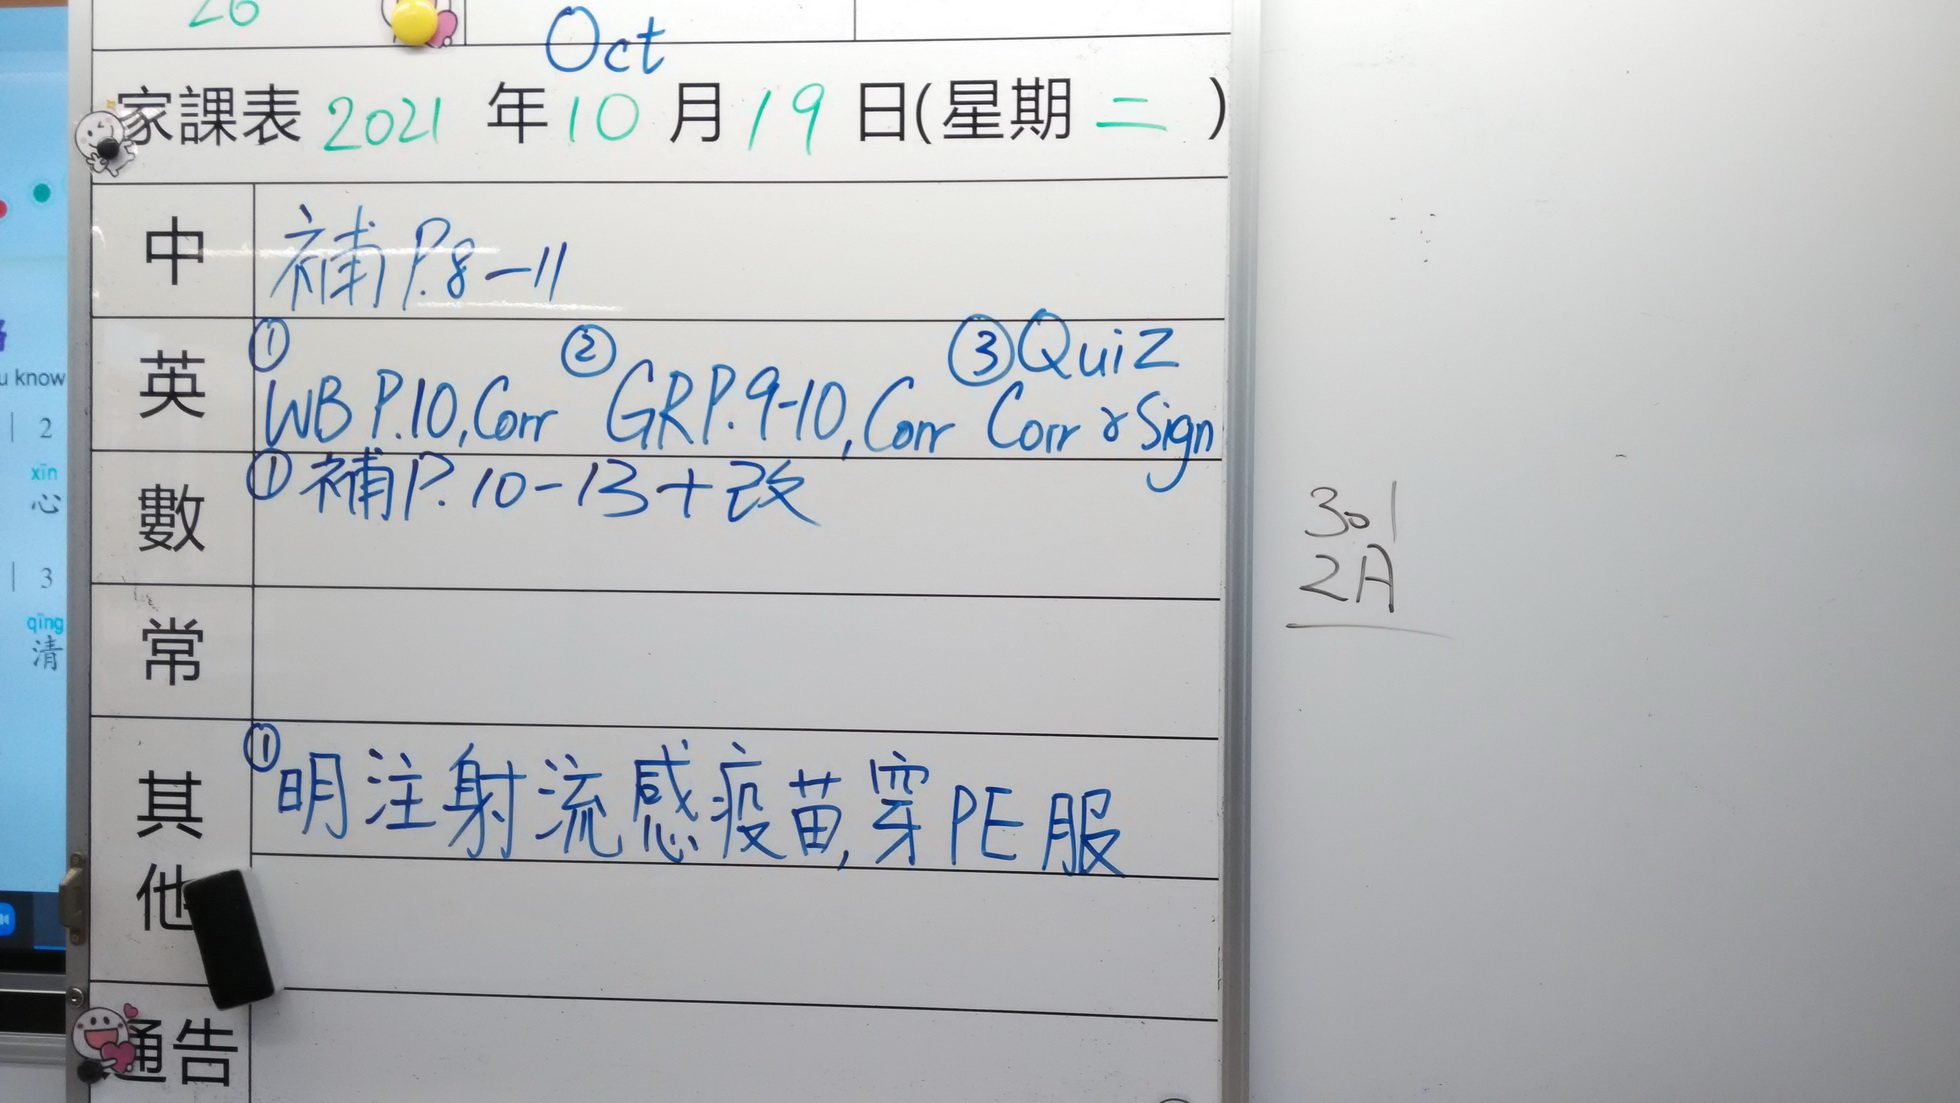 26
Oct
家課表 2021 年 10 月 19 日(星期 二 )
中 補 P.8-11
英 ① WB P.10, Corr ② GR P.9-10, Corr ③ Quiz Corr & Sign
數 ① 補 P.10-13+改
常
其他 ① 明注射流感疫苗, 穿PE服
通告
u know
2
xīn
心
3
qīng
清
301
2A